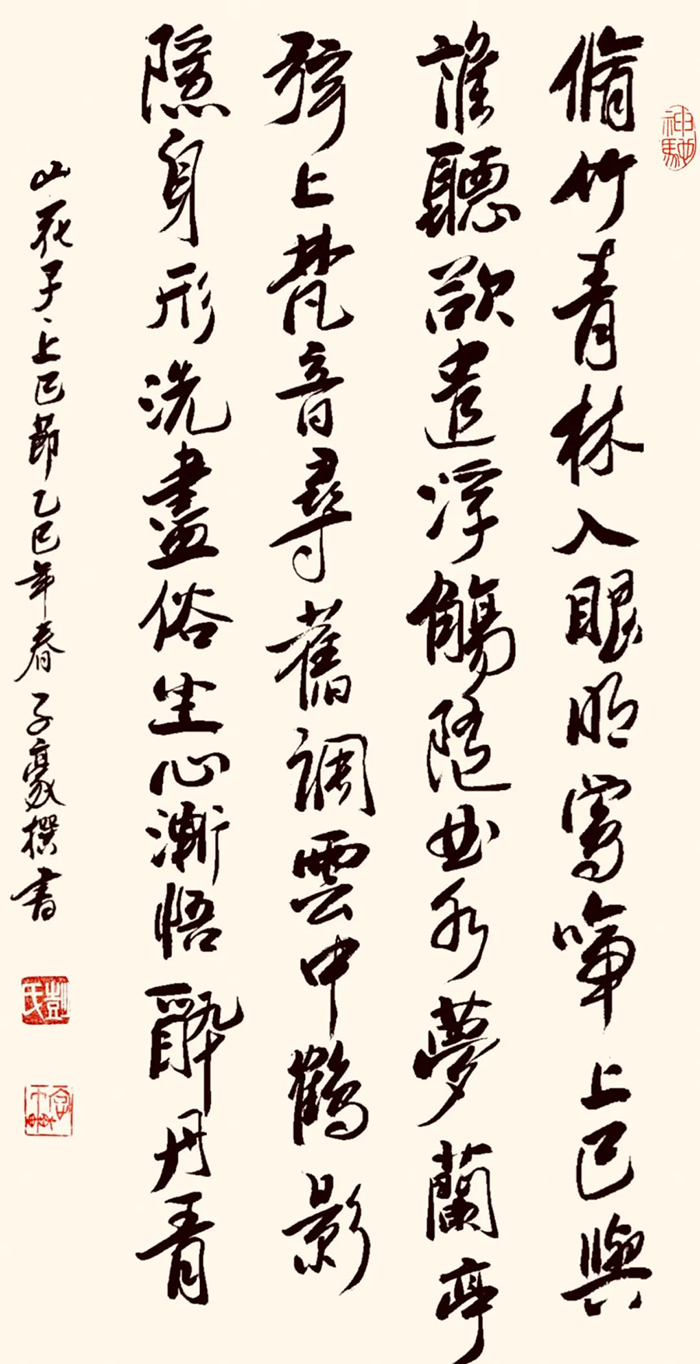 神馳
脩竹青林入眼明鶯啼上巳與
誰聽欲遣浮觴隨曲水夢蘭亭
弦上梵音尋舊調雲中鶴影
隱身形洗盡俗尘心漸悟醉丹青
山花子·上巳節乙巳年春子豪撰書
彭氏